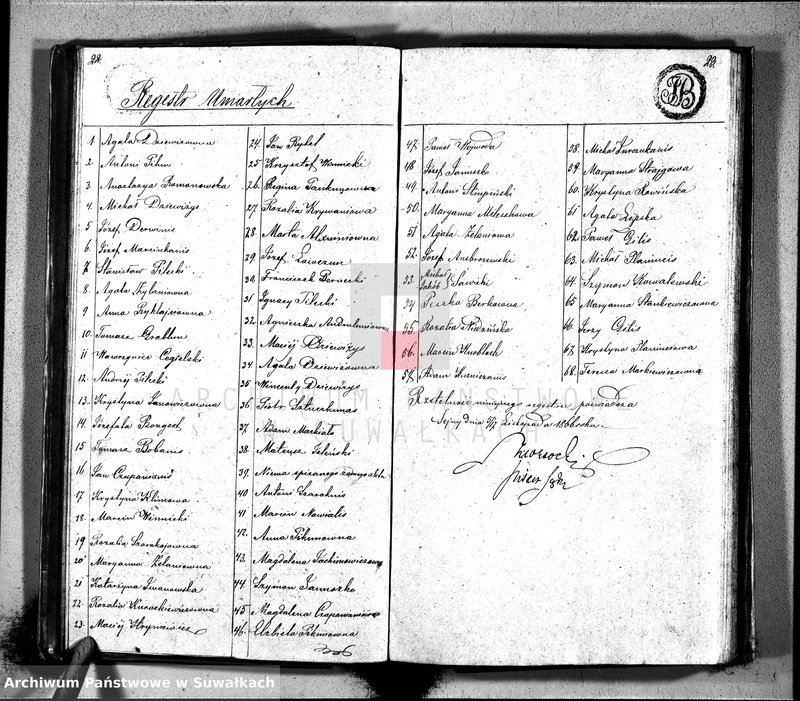 22
Regestr Umarłych
1. Agata Dziewisowna
2. Antoni Pihm
3. Anastazya Romanowska
4. Michał Dziewiżys
5 Józef Derwinis
6. Józef Marcinkanis
7 Stanisław Pilecki
8. Agata Zylaniowna
9. Anna Zyktajsowna
10. Tomasz Grablun
11 Wawrzyniec Cegielski
12. Andrzej Pilecki
13. Krystyna Janowiczowna
14. Józefata Bargoc
15 Tomasz Bobanis
16 Jan Czapanianis
17 Krystyna Klimowa
18. Marcin Winnicki
19 Rozalia Szarkajowna
20 Maryanna Zelaniowna
21 Katarzyna Iwanowska
22. Rozalia Kunackiewiczowna
23. Maciej Hryniewicz
24. Jan Rybel
25 Krzysztof Winnicki
26. Regina Tankunowicz
27 Rozalia Krywaniowa
28. Marta Aldwiniowna
29. Józef Ławczun
30. Franciszek Bernecki
31 Ignacy Pilecki
32. Agnieszka Andruleniowna
33. Maciej Dziewiżys
34 Agata Dziewisowna
35 Wincenty Dziewiżys
36 Piotr Satuchinas
37 Adam Machiato
38 Mateusz Jeliński
39. Niema
40 Antoni Szarahnis
41 Marcin Nowialis
42. Anna Pihmowna
43. Magdalena Jachimowiczowa
44. Szymon Jannoszko
45 Magdalena Czapananiowa
46. Elzbieta Pihmowna
23.
JB
47. Paweł Wojwoda
48 Józef Jannuszko
49. Antoni Strupiński
50. Maryanna Mileszhowa
51 Agata Zelaniowa
52. Józef Ambrozewski
53. Michał Jakób Sawicki
54 Peszka Berkowna
55. Rozalia Niedzińska
56. Marcin Knobloch
57. Adam
58. Michał Juszkanis
59. Maryanna Strazgowa
60. Krystyna Rowińska
61 Agata Lipska
62. Paweł Gitis
63. Michał Planiucis
64. Szymon Kowalewski
65 Maryanna Stankiewiczowna
66. Jerzy Gitis
67. Krystyna Planiucisowa
68. Teressa Markiewiczowna
Rzetelność niniejszego regestru poswiadcza
Sejny dnia Listopada 1866 roku.
Pisarz Sądu
Archiwum Państwowe w Suwałkach
ARCHIWUM PAŃSTWOWE
W SUWAŁKACH